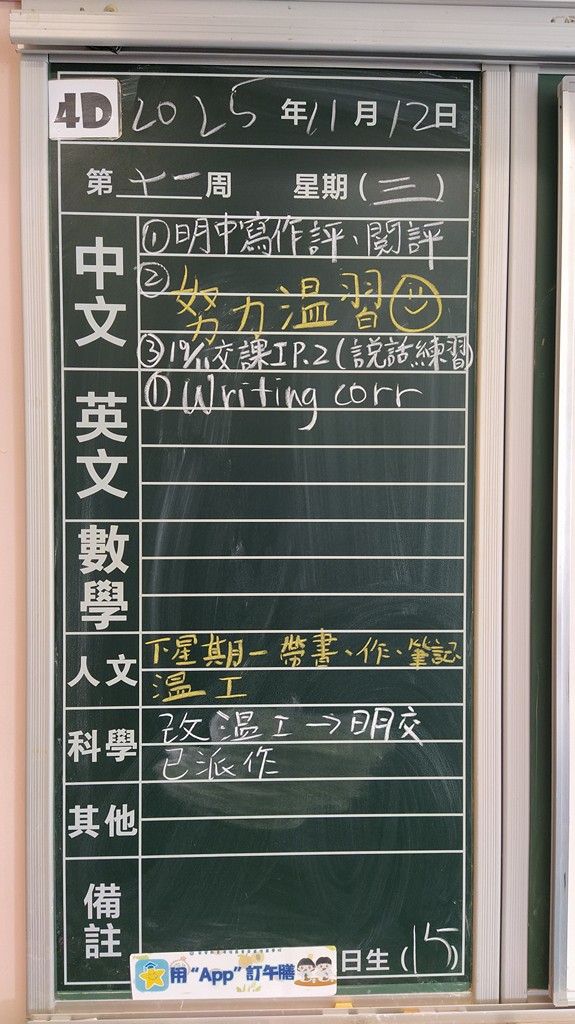 4D 2025年11月12日
第十一周 星期(三)
中文
①明中寫作評、閱評
②努力溫習
③19/11交課工P.2(説話練習)
英文
①Writing corr
數學
人文
下星期一帶書、作、筆記、
溫工
科學
改溫工→明交
已派作
其他
備註
用“App”訂午膳
日生(15)